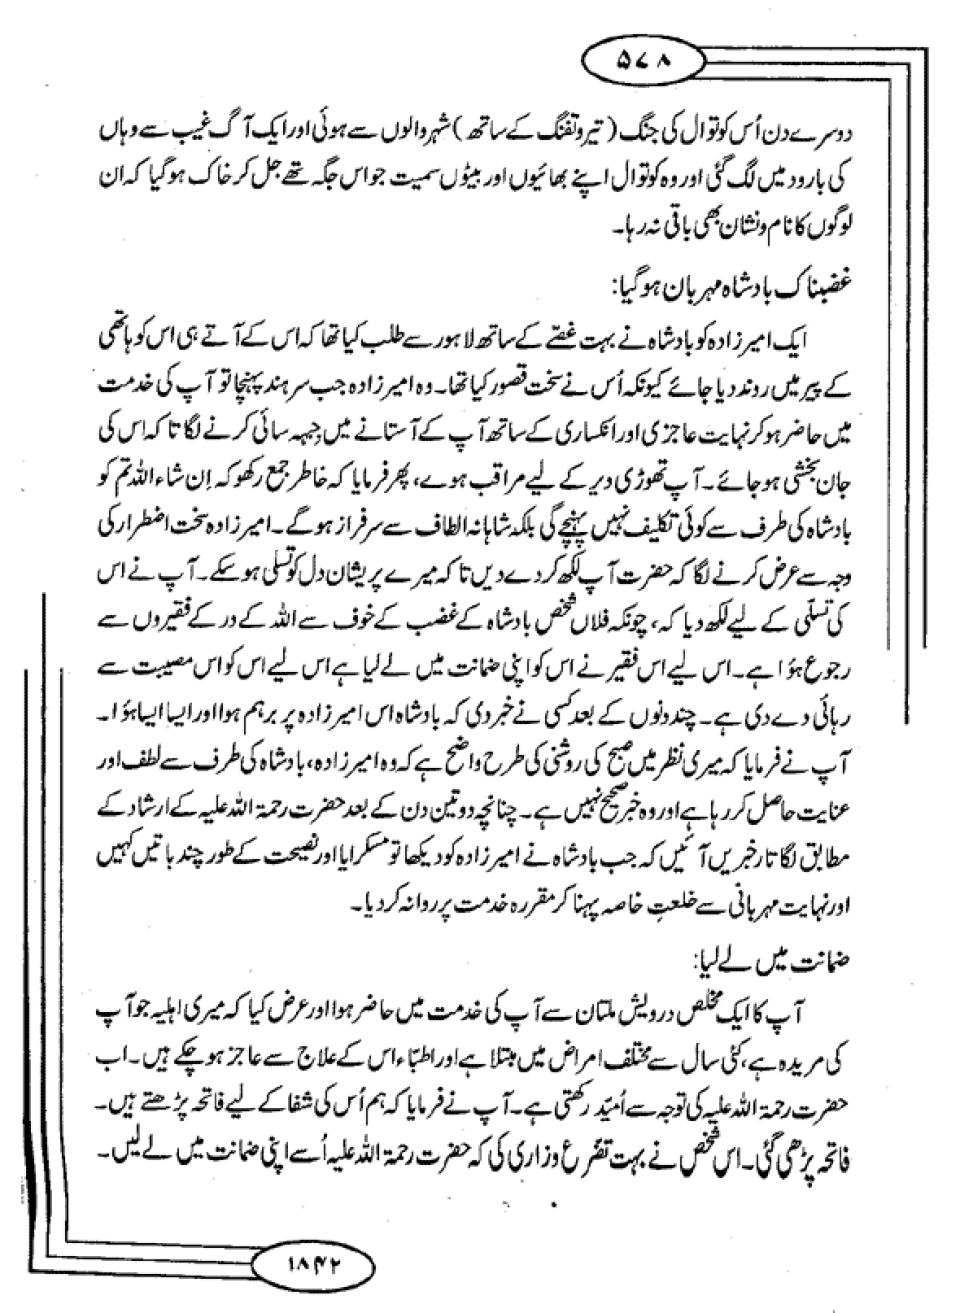 ۵۷۸
دوسرے دن اُس کوتوال کی جنگ (تیر و تفنگ کے ساتھ) شہر والوں سے ہوئی اور ایک آگ غیب سے وہاں
کی بارود میں لگ گئی اور وہ کوتوال اپنے بھائیوں اور بیٹوں سمیت جو اس جگہ تھے جل کر خاک ہوگیا کہ ان
لوگوں کا نام و نشان بھی باقی نہ رہا۔
غضبناک بادشاہ مہربان ہوگیا:
ایک امیر زادہ کو بادشاہ نے بہت غصّے کے ساتھ لاہور سے طلب کیا تھا کہ اس کے آتے ہی اس کو ہاتھی
کے پیر میں روند دیا جائے کیونکہ اُس نے سخت قصور کیا تھا۔ وہ امیر زادہ جب سرہند پہنچا تو آپ کی خدمت
میں حاضر ہو کر نہایت عاجزی اور انکساری کے ساتھ آپ کے آستانے میں جِبہہ سائی کرنے لگا تاکہ اِس کی
جان بخشی ہوجائے۔ آپ تھوڑی دیر کے لیے مراقب ہوے، پھر فرمایا کہ خاطر جمع رکھو کہ اِن شاء اللہ تم کو
بادشاہ کی طرف سے کوئی تکلیف نہیں پہنچے گی بلکہ شاہانہ الطاف سے سرفراز ہوگے۔ امیر زادہ سخت اضطرار کی
وجہ سے عرض کرنے لگا کہ حضرت آپ لکھ کر دے دیں تاکہ میرے پریشان دل کو تسلی ہوسکے۔ آپ نے اس
کی تسلّی کے لیے لکھ دیا کہ، چونکہ فلاں شخص بادشاہ کے غضب کے خوف سے اللہ کے در کے فقیروں سے
رجوع ہؤا ہے۔ اس لیے اس فقیر نے اس کو اپنی ضمانت میں لے لیا ہے اس لیے اس کو اس مصیبت سے
رہائی دے دی ہے۔ چند دنوں کے بعد کسی نے خبر دی کہ بادشاہ اس امیر زادہ پر برہم ہوا اور ایسا ایسا ہؤا۔
آپ نے فرمایا کہ میری نظر میں صبح کی روشنی کی طرح واضح ہے کہ وہ امیر زادہ، بادشاہ کی طرف سے لطف اور
عنایت حاصل کر رہا ہے اور وہ خبر صحیح نہیں ہے۔ چنانچہ دو تین دن کے بعد حضرت رحمۃ اللہ علیہ کے ارشاد کے
مطابق لگاتار خبریں آئیں کہ جب بادشاہ نے امیر زادہ کو دیکھا تو مسکرایا اور نصیحت کے طور چند باتیں کہیں
اور نہایت مہربانی سے خلعتِ خاصہ پہنا کر مقررہ خدمت پر روانہ کر دیا۔
ضمانت میں لے لیا:
آپ کا ایک مخلص درویش ملتان سے آپ کی خدمت میں حاضر ہوا اور عرض کیا کہ میری اہلیہ جو آپ
کی مریدہ ہے، کئی سال سے مختلف امراض میں مبتلا ہے اور اطبّاء اس کے علاج سے عاجز ہوچکے ہیں۔ اب
حضرت رحمۃ اللہ علیہ کی توجہ سے اُمیّد رکھتی ہے۔ آپ نے فرمایا کہ ہم اُس کی شفا کے لیے فاتحہ پڑھتے ہیں۔
فاتحہ پڑھی گئی۔ اس شخص نے بہت تضرّع و زاری کی کہ حضرت رحمۃ اللہ علیہ اُسے اپنی ضمانت میں لے لیں۔
۱۸۴۲